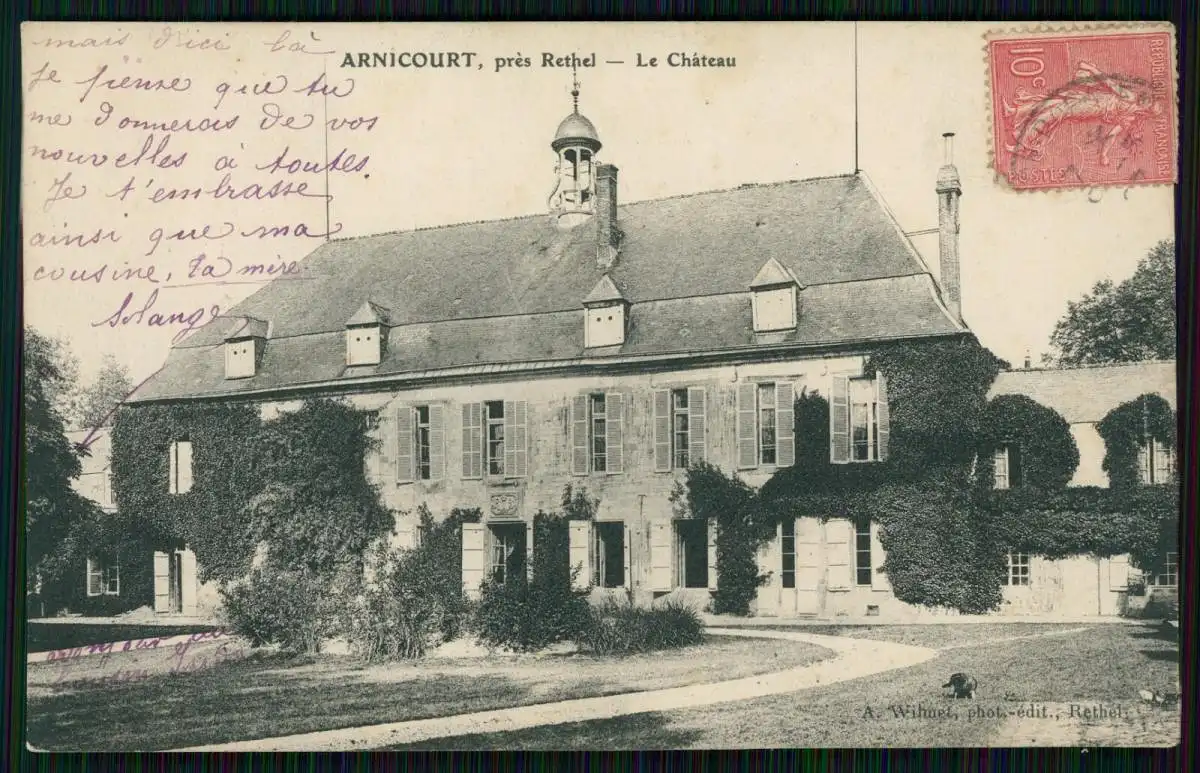 ARNICOURT, près Rethel — Le Château
mais d'ici là
Je pense que tu
me donnerais de vos
nouvelles à toutes.
Je t'embrasse
ainsi que ma
cousine, ta mère
Solange
10c
REPUBLIQUE FRANÇAISE
POSTES
A. Wilmet, phot.-édit., Rethel.